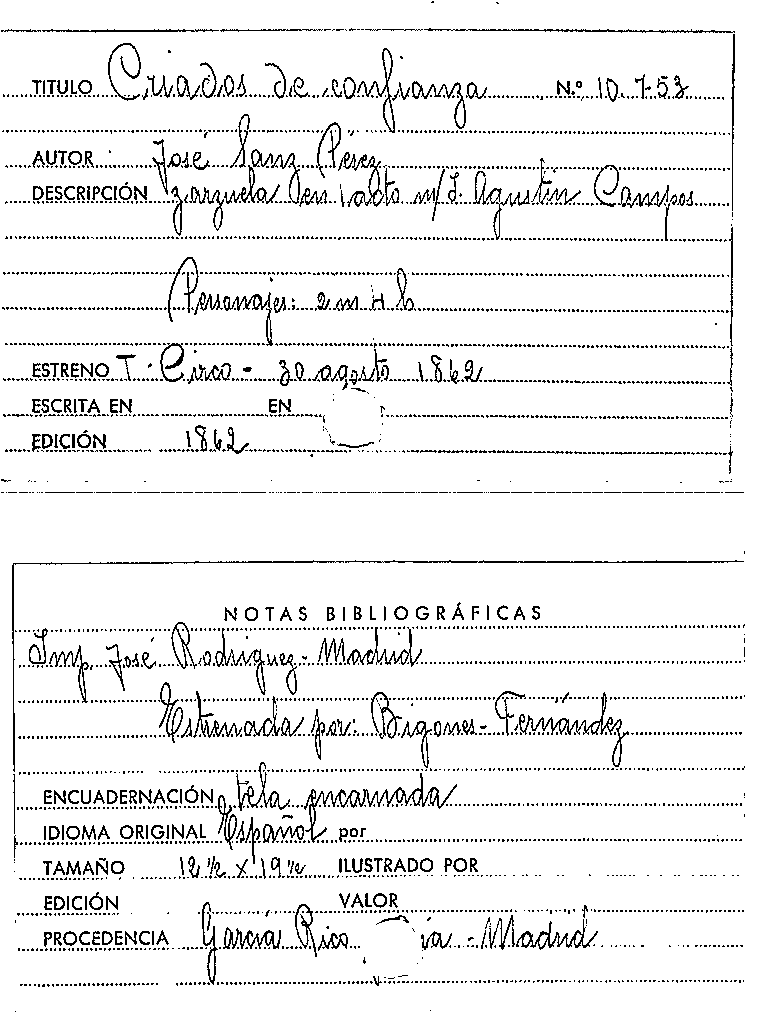 TITULO Criados de confianza N.º 10.753
AUTOR José Sanz Pérez
DESCRIPCIÓN zarzuela en 1 acto m/ J. Agustín Campos
Personajes: 2 m 4 h
ESTRENO T. Circo - 30 agosto 1862
ESCRITA EN EN
EDICIÓN 1862
NOTAS BIBLIOGRÁFICAS
Imp. José Rodriguez - Madrid
Estrenada por: Bigones - Fernández
ENCUADERNACIÓN tela encarnada
IDIOMA ORIGINAL Español por
TAMAÑO 12 ½ x 19 ½ ILUSTRADO POR
EDICIÓN VALOR
PROCEDENCIA García Rico ia - Madrid